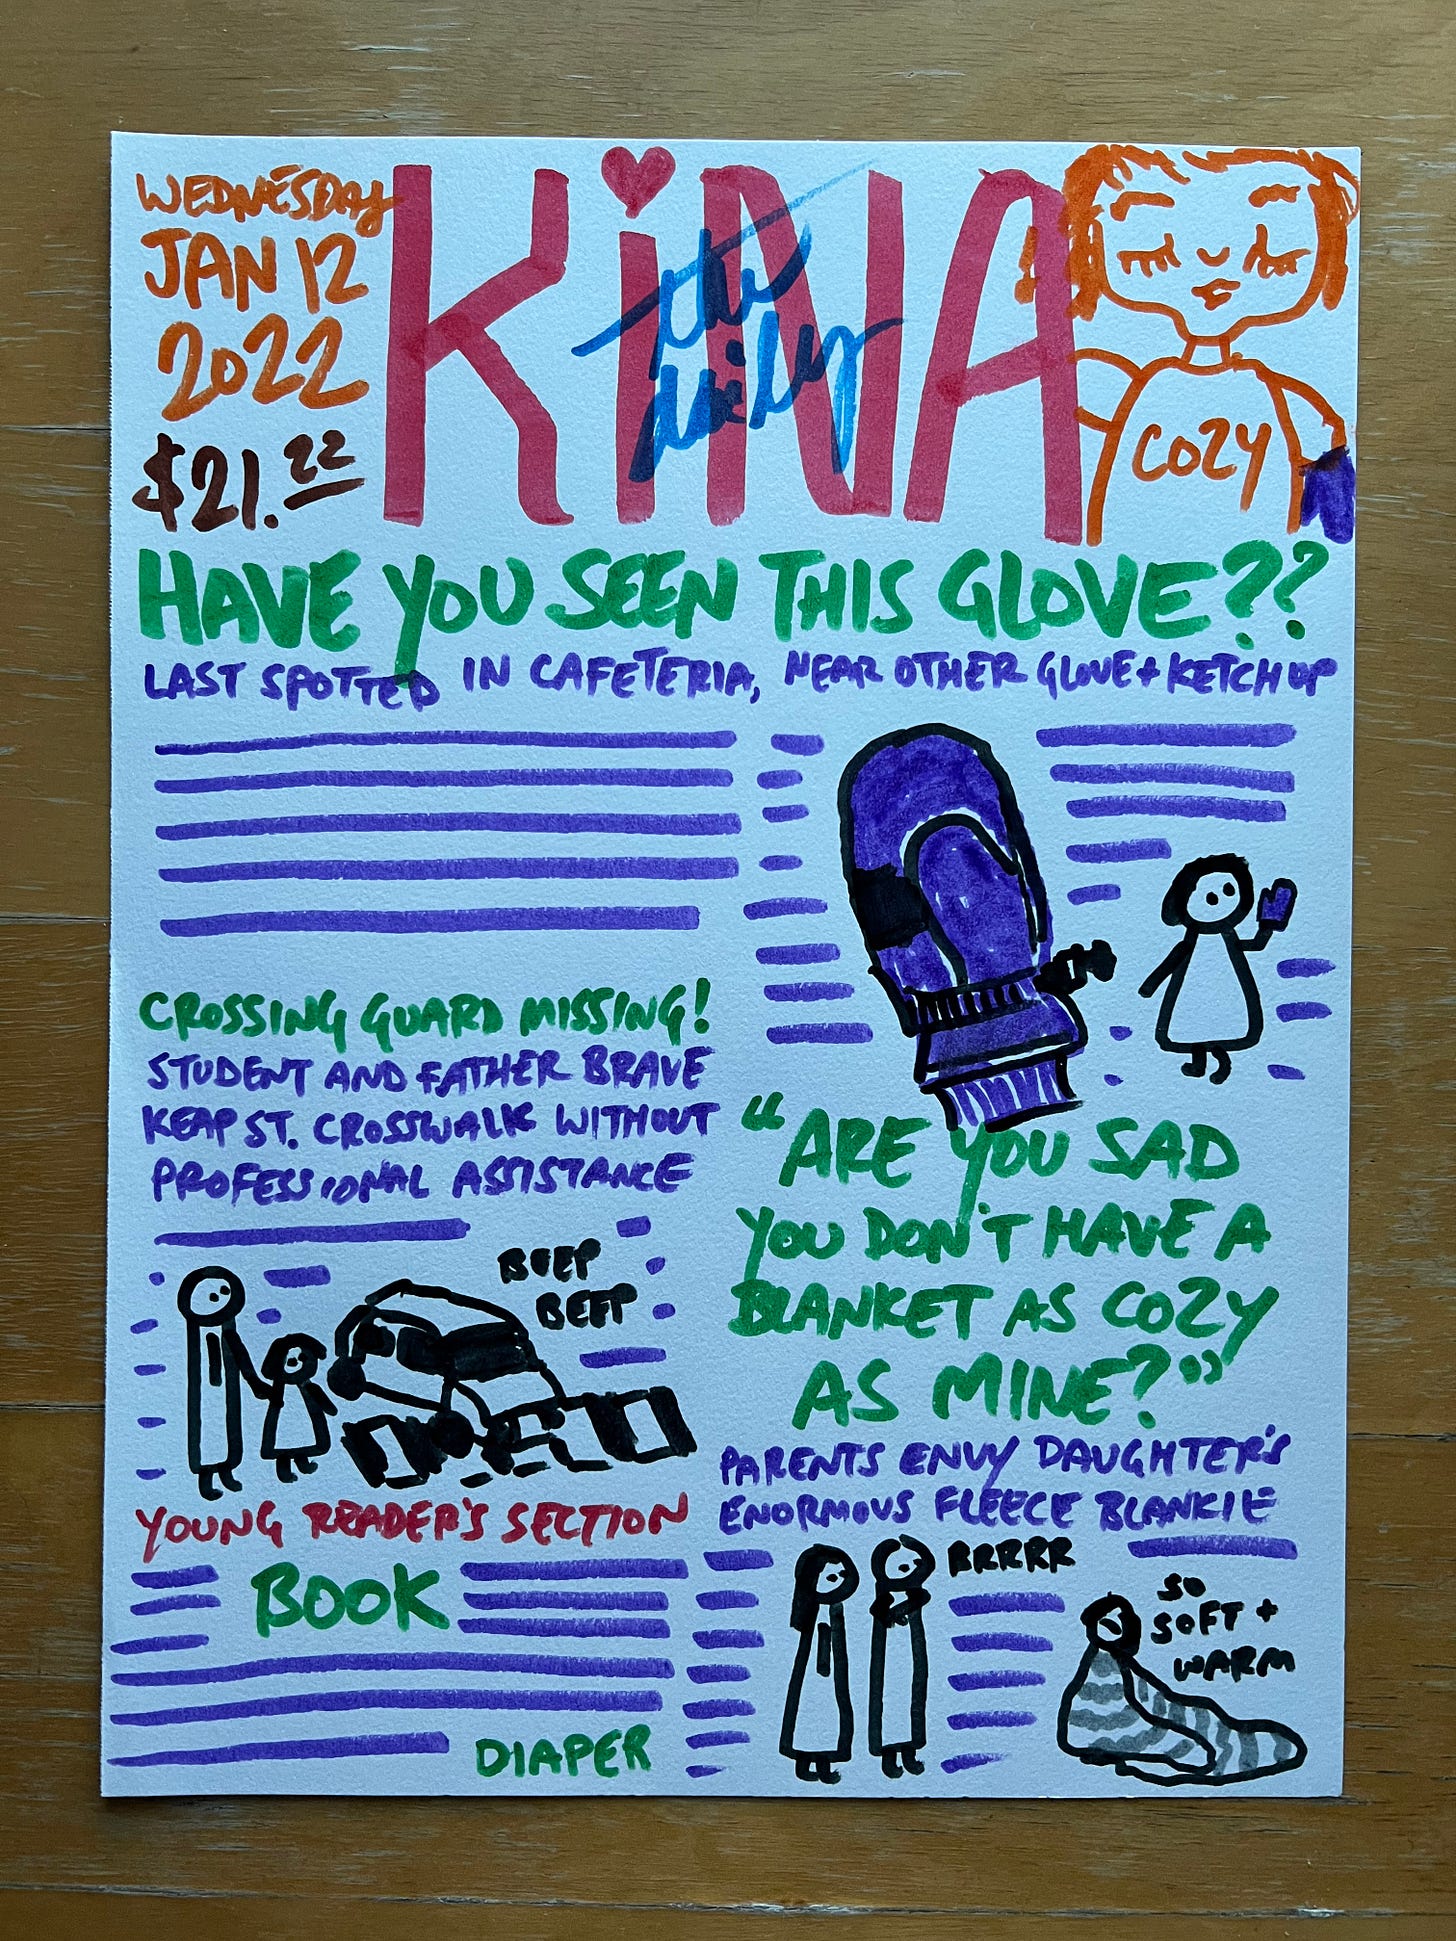 WEDNESDAY
JAN 12
2022
$21.22
KiNA
the daily
COZY
HAVE YOU SEEN THIS GLOVE??
LAST SPOTTED IN CAFETERIA, NEAR OTHER GLOVE + KETCHUP
CROSSING GUARD MISSING!
STUDENT AND FATHER BRAVE
KEAP ST. CROSSWALK WITHOUT
PROFESSIONAL ASSISTANCE
BEEP
BEEP
YOUNG READER'S SECTION
BOOK
DIAPER
"ARE YOU SAD
YOU DON'T HAVE A
BLANKET AS COZY
AS MINE?"
PARENTS ENVY DAUGHTER'S
ENORMOUS FLEECE BLANKIE
BRRRR
SO
SOFT +
WARM